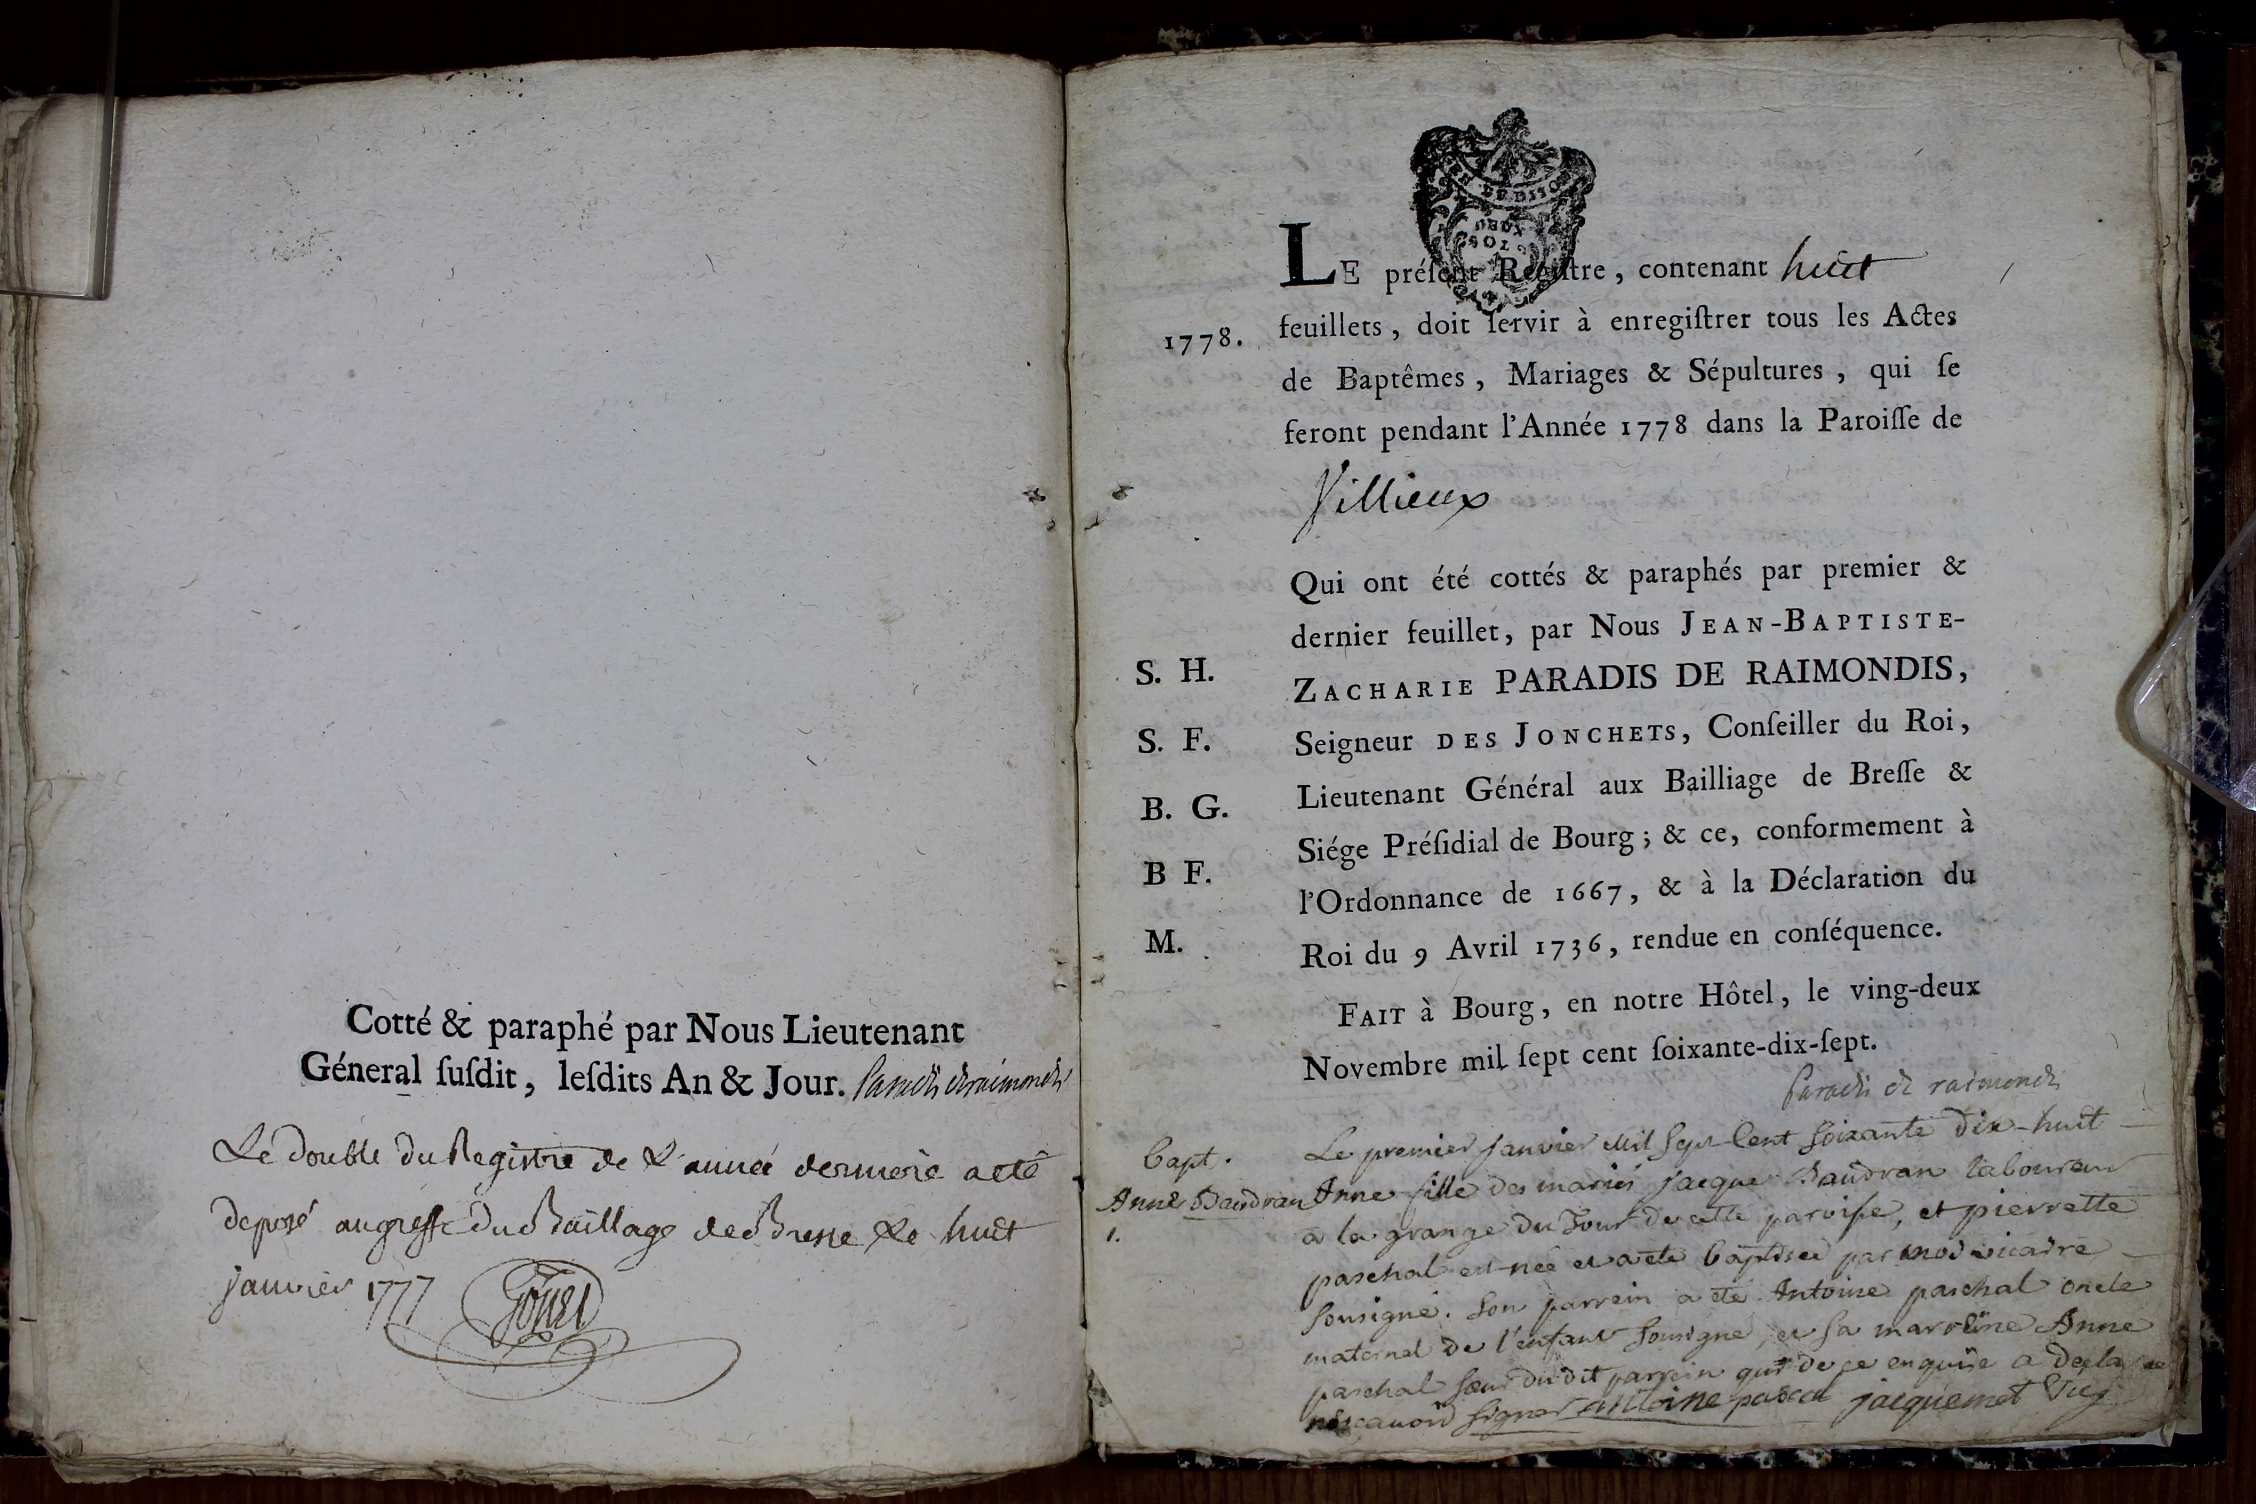 Cotté & paraphé par Nous Lieutenant
Géneral ſuſdit, leſdits An & Jour. Paradis deraimondis
Le double du Registre de L'année derniere a eté
deposé au greffe du Baillage de Bresse Le huit
janvier 1777
GEN DE DIJON
DEUX
SOLS
LE préſent Regiſtre, contenant huit
1778. feuillets, doit ſervir à enregiſtrer tous les Actes
de Baptêmes, Mariages & Sépultures, qui ſe
feront pendant l'Année 1778 dans la Paroiſſe de
Villieux
Qui ont été cottés & paraphés par premier &
dernier feuillet, par Nous JEAN-BAPTISTE-
S. H. ZACHARIE PARADIS DE RAIMONDIS,
S. F. Seigneur DES JONCHETS, Conſeiller du Roi,
B. G. Lieutenant Général aux Bailliage de Breſſe &
Siége Préſidial de Bourg; & ce, conformement à
B F. l'Ordonnance de 1667, & à la Déclaration du
M. Roi du 9 Avril 1736, rendue en conſéquence.
FAIT à Bourg, en notre Hôtel, le ving-deux
Novembre mil ſept cent ſoixante-dix-ſept.
Paradis de raimondis
Bapt. Le premier janvier Mil Sept Cent soixante Dix-huit
Anne Baudran Anne fille des mariés jacque Baudran laboureur
1. a la grange du Four de cette paroisse, et pierrette
paschal est née et a eté baptisée par moi vicaire
sousigné. son parrein a eté Antoine paschal oncle
maternel de l'enfant sousigné, et sa marreine Anne
paschal sœur dudit parrein qui de ce enquise a declaré
ne sçavoir signer antoine pascal jacquemet Vic